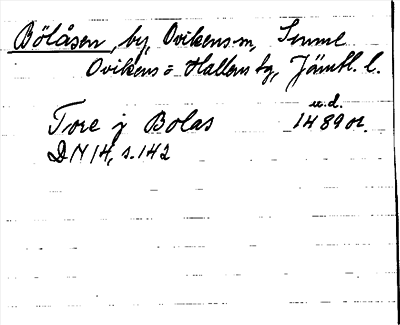 Bölåsen, by, Ovikens sn,
Ovikens o Hallens tg, Jämtl. l.
u.d.
Tore j Bolas 1489 or.
DN 14, s. 142